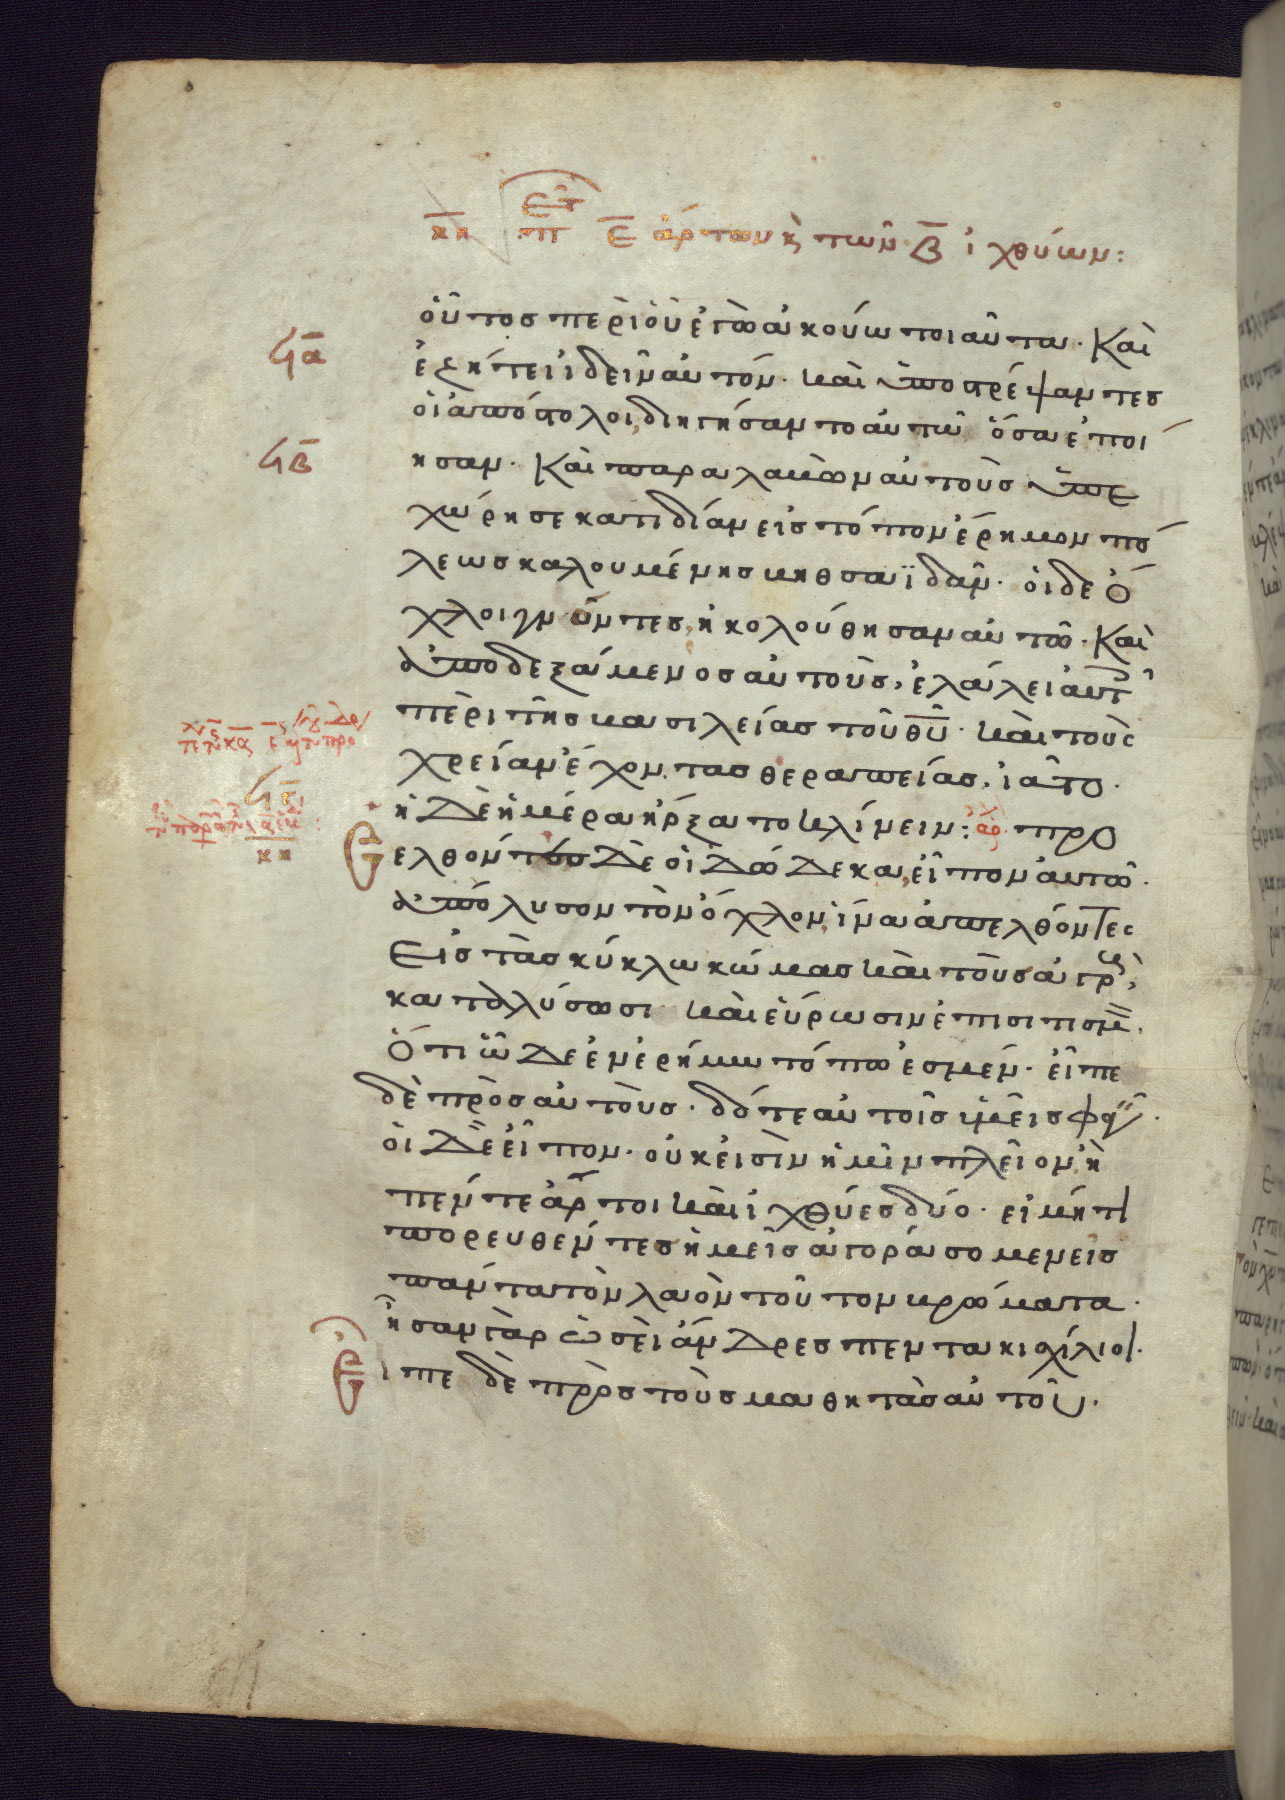 κη περὶ τῶν ε̄ ἄρτων κ̀ τῶν β̄ ἰχθύων:
οὗτος περὶ οὗ ἐγὼ ἀκούω τοιαῦτα· Καὶ
ἐζήτει ἰδεῖν αὐτόν· καὶ ὑποστρέψαντες
οἱ ἀπόστολοι, διηγήσαντο αὐτῶ ὅσα ἐποί
ησαν· Καὶ παραλαβὼν αὐτοὺς ὑπε
χώρησε κατιδίαν εἰς τόπον ἔρημον πό
λεως καλουμένης βηθσαϊδάν· οἱ δὲ ὄ
χλοι γνόντες, ἠκολούθησαν αὐτῶ· Καὶ
ἀποδεξάμενος αὐτοὺς, ἐλάλει αὐτ
περὶ τῆς βασιλείας τοῦ θ̄ῡ· καὶ τοὺς
χρείαν ἔχοντας θεραπείας, ἰᾶτο·
ἡ δὲ ἡμέρα ἤρξατο κλίνειν: ἀρχ προ
Σελθόντες δὲ οἱ δώδεκα, εἶπον αὐτῶ·
ἀπόλυσον τὸν ὄχλον, ἵνα ἀπελθόντες
Εἰς τὰς κύκλω κώμας καὶ τοὺς ἀγρ,
καταλύσωσι καὶ εὕρωσιν ἐπισιτισμ·
Ὅτι ὧδε ἐν ἐρήμω τόπω ἐσμέν· εἶπε
δὲ πρὸς αὐτοὺς· δότε αὐτοῖς ὑμεῖς φαγ·
οἱ δὲ εἶπον· οὐκ εἰσὶν ἡμῖν πλεῖον ἢ
πέντε ἄρτοι καὶ ἰχθύες δύο· εἰ μή τι
πορευθέντες ἡμεῖς ἀγοράσομεν εἰς
πάντα τὸν λαὸν τοῦτον βρώματα·
ἦσαν γὰρ ὡσεὶ ἄνδρες πεντακισχίλιοι·
Εἶπε δὲ πρὸς τοὺς μαθητὰς αὐτοῦ·
ϟᾱ
ϟβ̄
κη